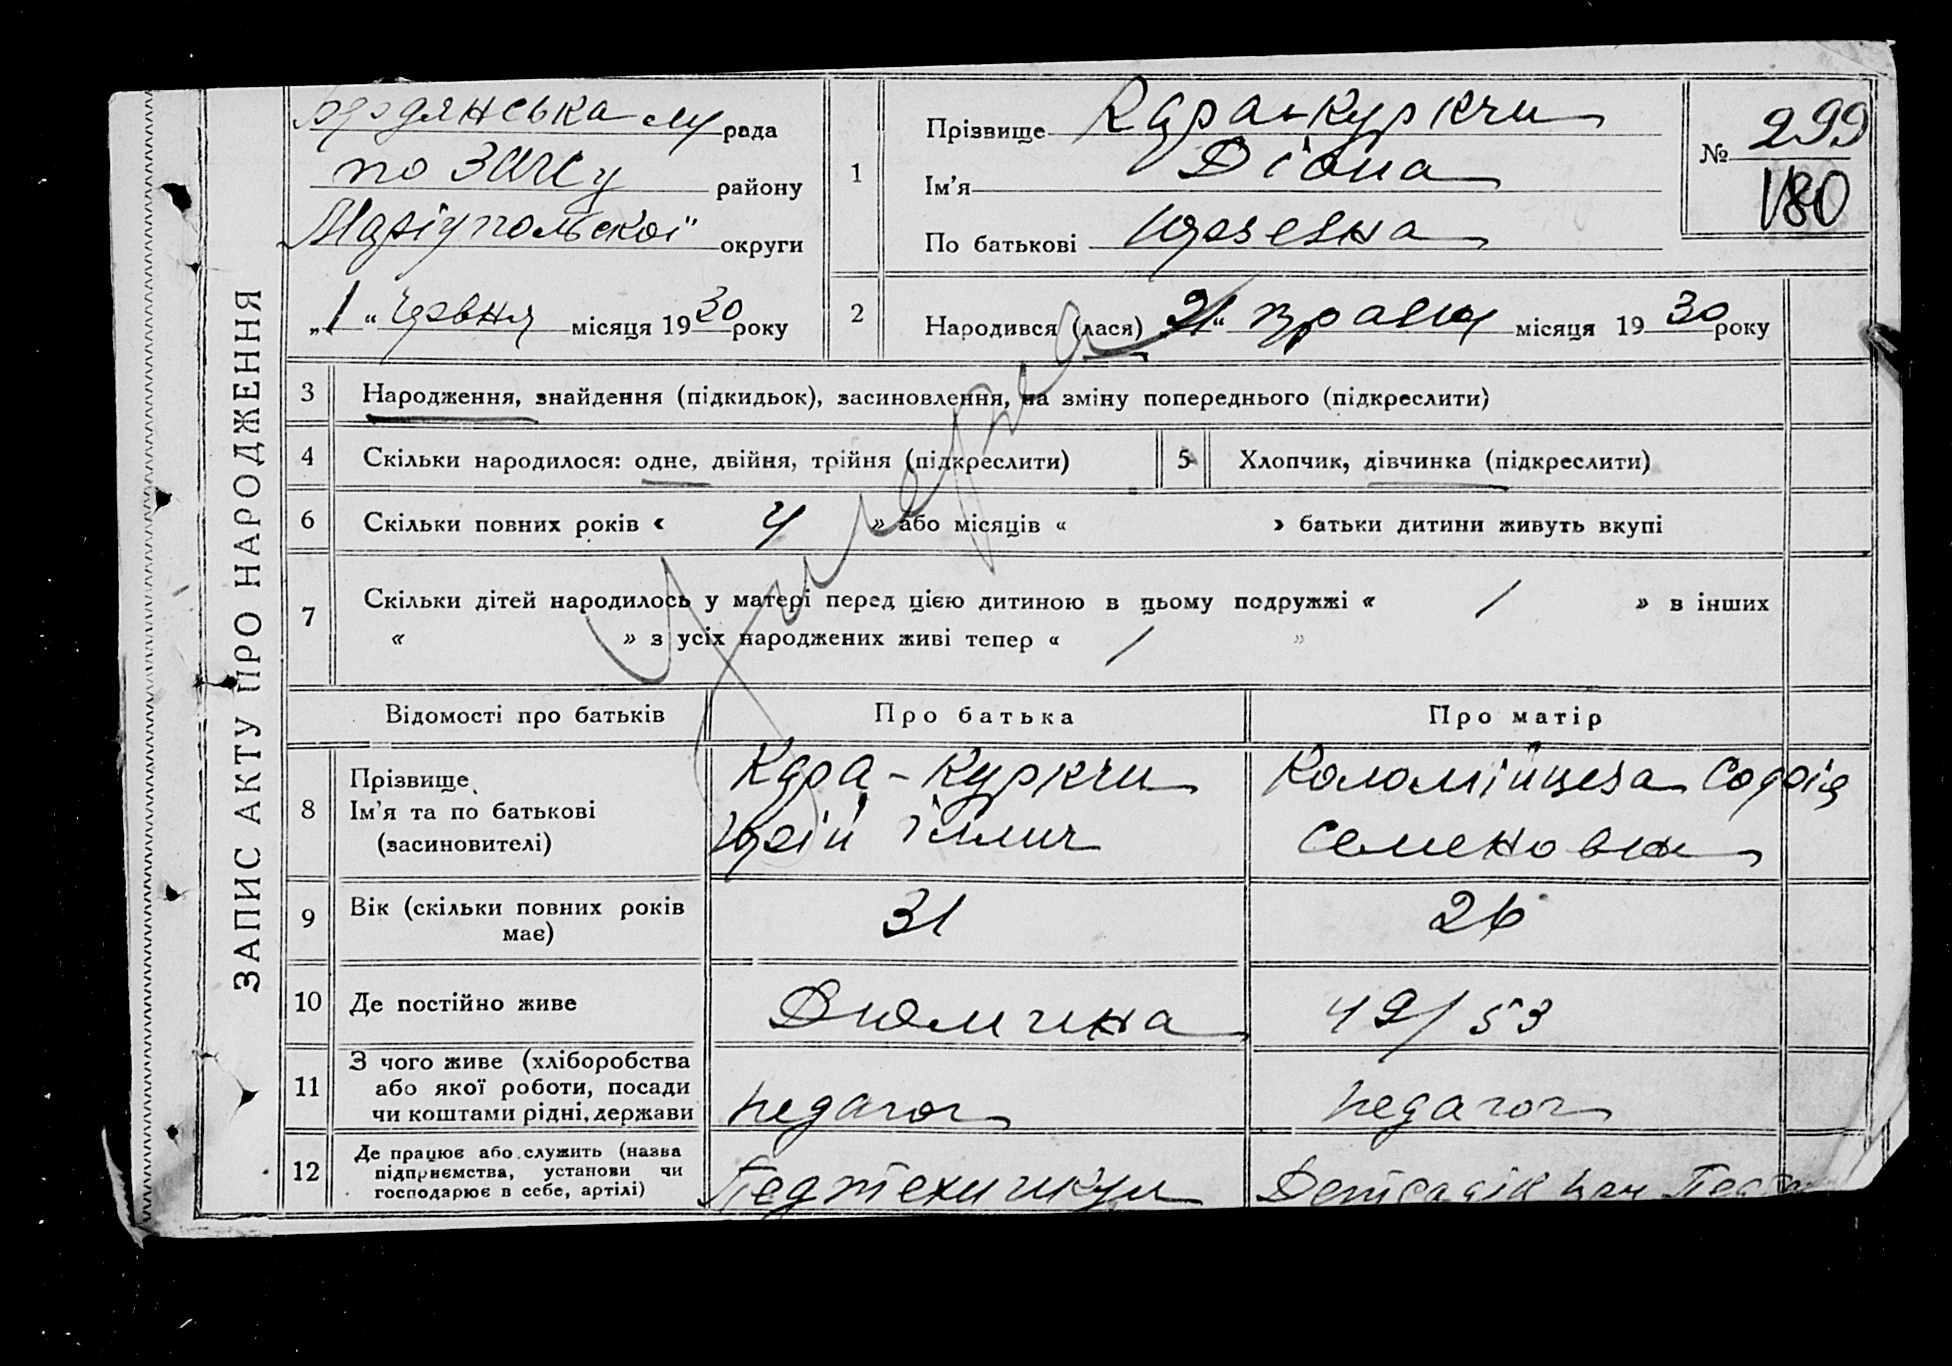 ЗАПИС АКТУ ПРО НАРОДЖЕННЯ
Бердянська м рада
по ЗАГСу району
Маріупольскої округи
„1“ червня місяця 1930 року
1
Прізвище Кара-Куркчи
Ім'я Діана
По батькові Юрзевна
№ 299
180
2
Народився (лася) „21“ травня місяця 1930 року
3 Народження, знайдення (підкидьок), засиновлення, на зміну попереднього (підкреслити)
4 Скільки народилося: одне, двійня, трійня (підкреслити)
5 Хлопчик, дівчинка (підкреслити)
6 Скільки повних років « 4 » або місяців « » батьки дитини живуть вкупі
7 Скільки дітей народилось у матері перед цією дитиною в цьому подружжі « 1 » в інших
« » з усіх народжених живі тепер « 1 »
Відомості про батьків Про батька Про матір
8 Прізвище
Ім'я та по батькові
(засиновителі)
Кара-Куркчи
Юрій Ілліч
Коломійцева Софія
Семеновна
9 Вік (скільки повних років
має)
31
26
10 Де постійно живе
Дюмина
49/53
11 З чого живе (хліборобства
або якої роботи, посади
чи коштами рідні, держави
педагог
педагог
12 Де працює або служить (назва
підприємства, установи чи
господарює в себе, артілі)
Педтехникум
Детсадік при